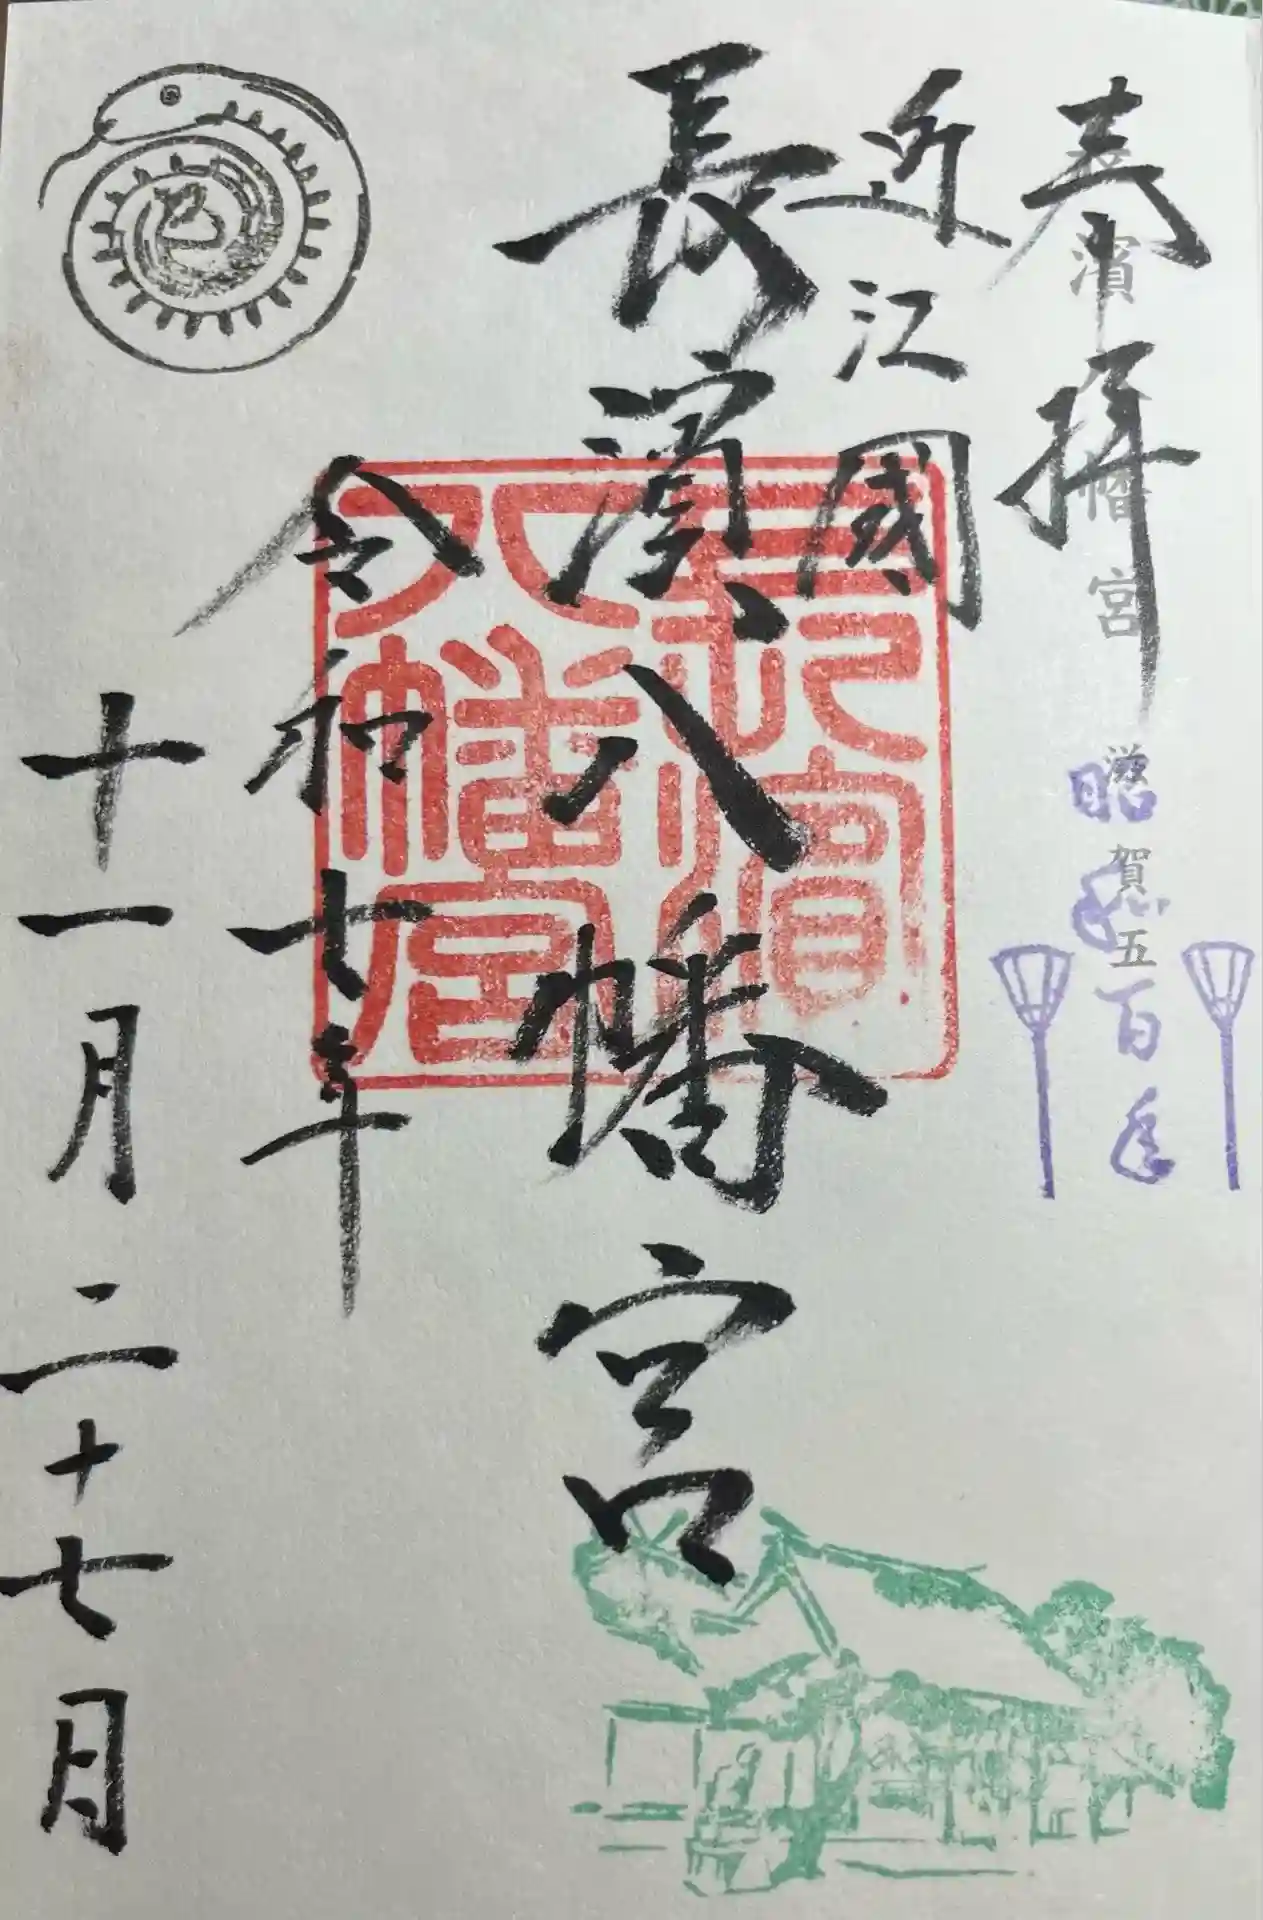 奉拝
濱幡宮
滋賀五
昭和百年
近江國
長濱八幡宮
長濱
八幡宮
令和七年
十一月二十七日
巳